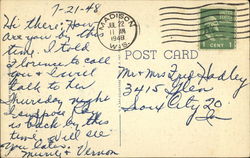 7-21-48
Hi there: How
are you by this
time. I told
Lounge to call
you & I will
talk to her
Thursday night
I suppose Ra
is back by this
time. Will see
you later.
Muriel & Vernon
MADISON
JUL 22
11 AM
1948
WIS.
1¢
POST CARD
Mr & Mrs Fred Hadley
3415 Glen
Sioux City 20
Ia.